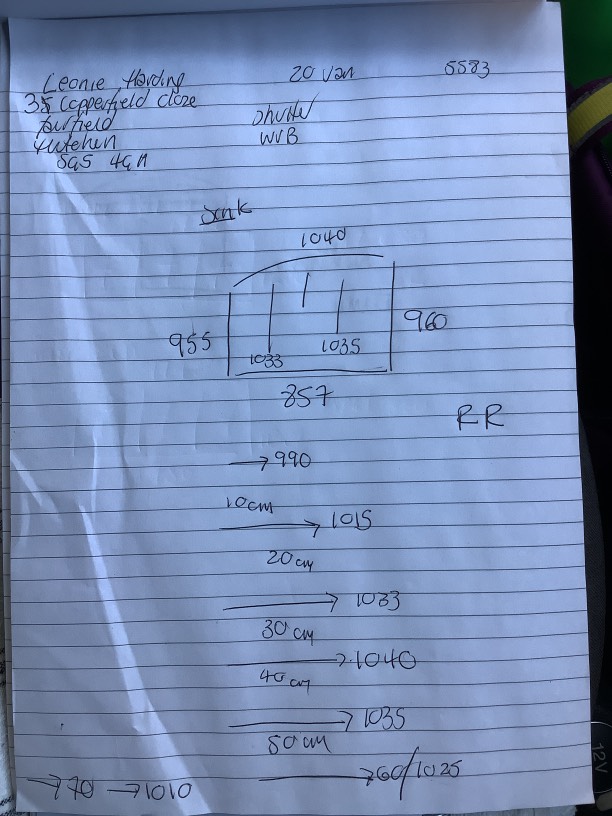 Leonie Harding 20 Van 5583
35 Copperfield close
Fairfield Shutter
WVB
SG5 4GN
1040
955 960
1033 1035
857
RR
→990
10cm
→1015
20cm
→1033
30cm
→1040
40cm
→1035
50cm
→60/1025
→70 →1010
12V